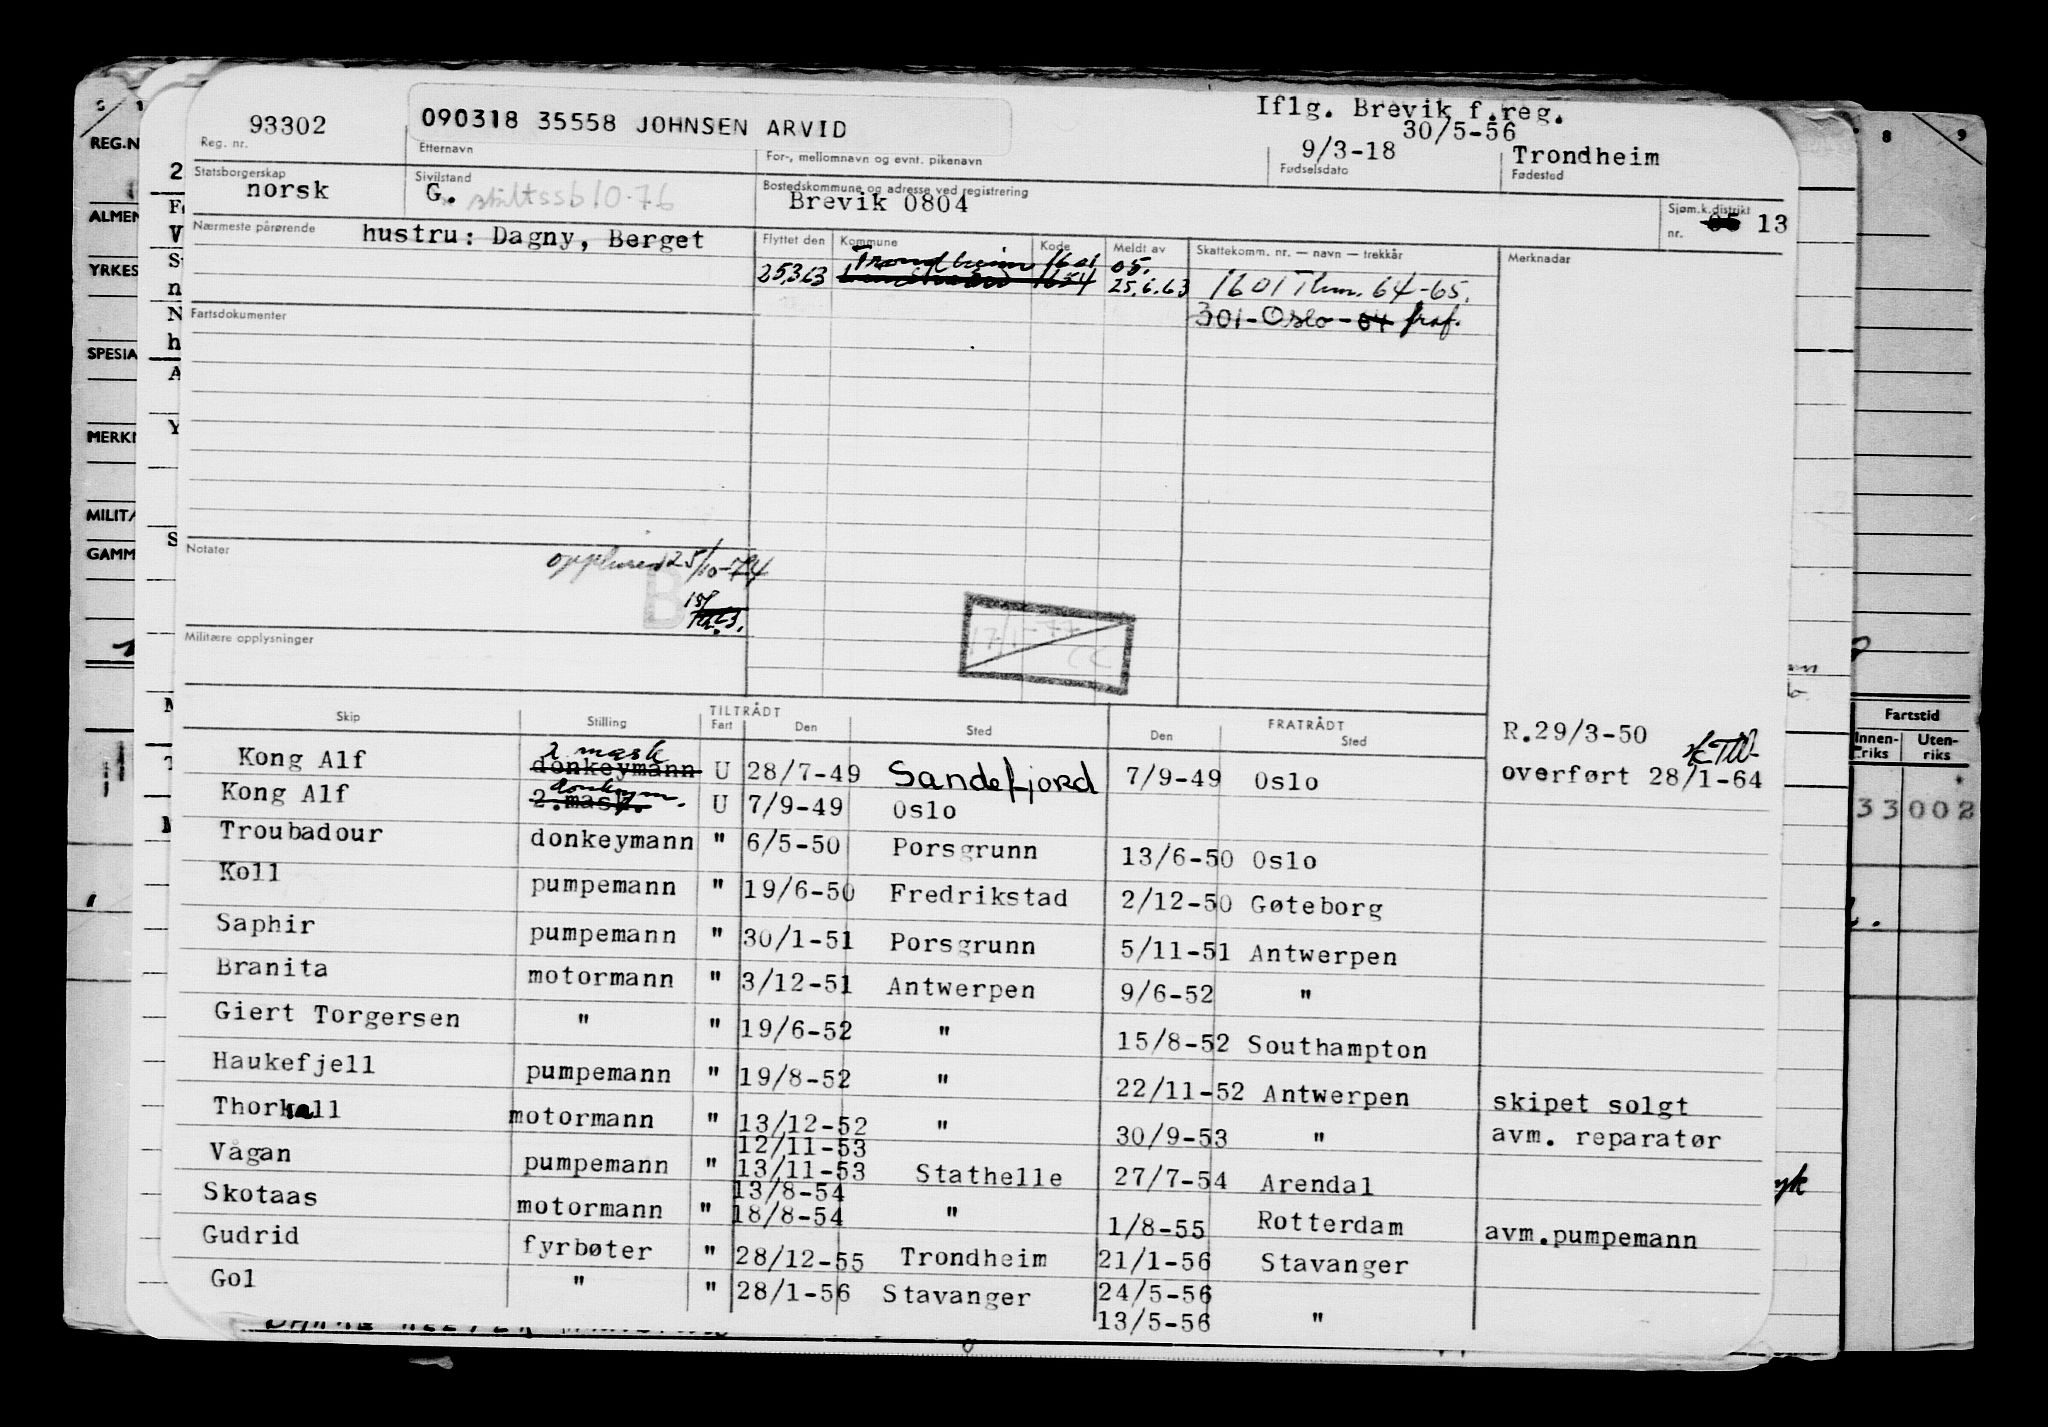 Iflg. Brevik f.reg.
93302 090318 35558 JOHNSEN ARVID 30/5-56
9/3-18 Trondheim
Reg. nr. Etternavn For-, mellomnavn og evnt. pikenavn Fødselsdato Fødested
Statsborgerskap Sivilstand Bostedskommune og adresse ved registrering Sjøm.k.distrikt
norsk G. Brevik 0804 nr. 05 13
Nærmeste pårørende hustru: Dagny, Berget Flyttet den Kommune Kode Meldt av Skattekomm. nr. — navn — trekkår Merknadar
Trondheim 1601 05.
25363 1654 25.6.63 1601 Thm. 64-65.
Fartsdokumenter 301-Oslo-64
Notater
25/10-74
B
Militære opplysninger
17/1-77
Skip Stilling TILTRÅDT Fart Den Sted FRATRÅDT Den Sted
R.29/3-50
2 mask
Kong Alf donkeymann U 28/7-49 Sandefjord 7/9-49 Oslo overført 28/1-64
donkeym.
Kong Alf 2.mask. U 7/9-49 Oslo
Troubadour donkeymann " 6/5-50 Porsgrunn 13/6-50 Oslo
Koll pumpemann " 19/6-50 Fredrikstad 2/12-50 Gøteborg
Saphir pumpemann " 30/1-51 Porsgrunn 5/11-51 Antwerpen
Branita motormann " 3/12-51 Antwerpen 9/6-52 "
Giert Torgersen " " 19/6-52 " 15/8-52 Southampton
Haukefjell pumpemann " 19/8-52 " 22/11-52 Antwerpen skipet solgt
Thorkall motormann " 13/12-52 " 30/9-53 " avm. reparatør
12/11-53
Vågan pumpemann " 13/11-53 Stathelle 27/7-54 Arendal
13/8-54
Skotaas motormann " 18/8-54 " 1/8-55 Rotterdam avm.pumpemann
Gudrid fyrbøter " 28/12-55 Trondheim 21/1-56 Stavanger
Gol " " 28/1-56 Stavanger 24/5-56
13/5-56 "
REG.N
ALMEN
YRKES
SPESIA
MERKN
MILITÆ
GAMM
8 9
Fartstid
Innen-
riks
Uten-
riks
33 002